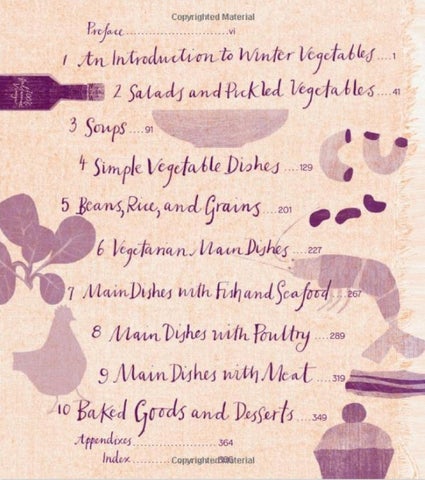 Copyrighted Material
Preface.......................vi
1 An Introduction to Winter Vegetables....1
2 Salads and Pickled Vegetables....41
3 Soups....91
4 Simple Vegetable Dishes....129
5 Beans, Rice, and Grains....201
6 Vegetarian Main Dishes....227
7 Main Dishes with Fish and Seafood....267
8 Main Dishes with Poultry....289
9 Main Dishes with Meat....319
10 Baked Goods and Desserts....349
Appendixes...................364
Index
Copyrighted Material